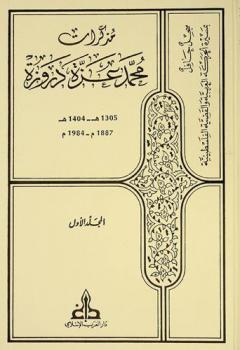 مذكرات
محمد عزة دروزة
1305 هـ - 1404 هـ
1887 م - 1984 م
المجلد الأول
سجل حافل
بمسيرة الحركة العربية والقضية الفلسطينية
دار الغرب الإسلامي